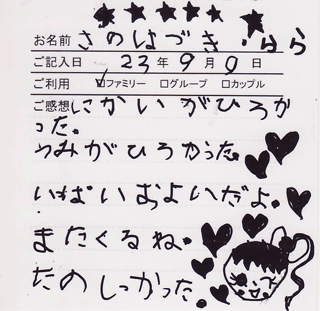 お名前 さのはづき・はら
ご記入日 23年9月9日
ご利用 ☑ファミリー □グループ □カップル
ご感想 にかいがひろか
った。
うみがひろかった。
いぱいおよいだよ。
またくるね。
たのしかった。